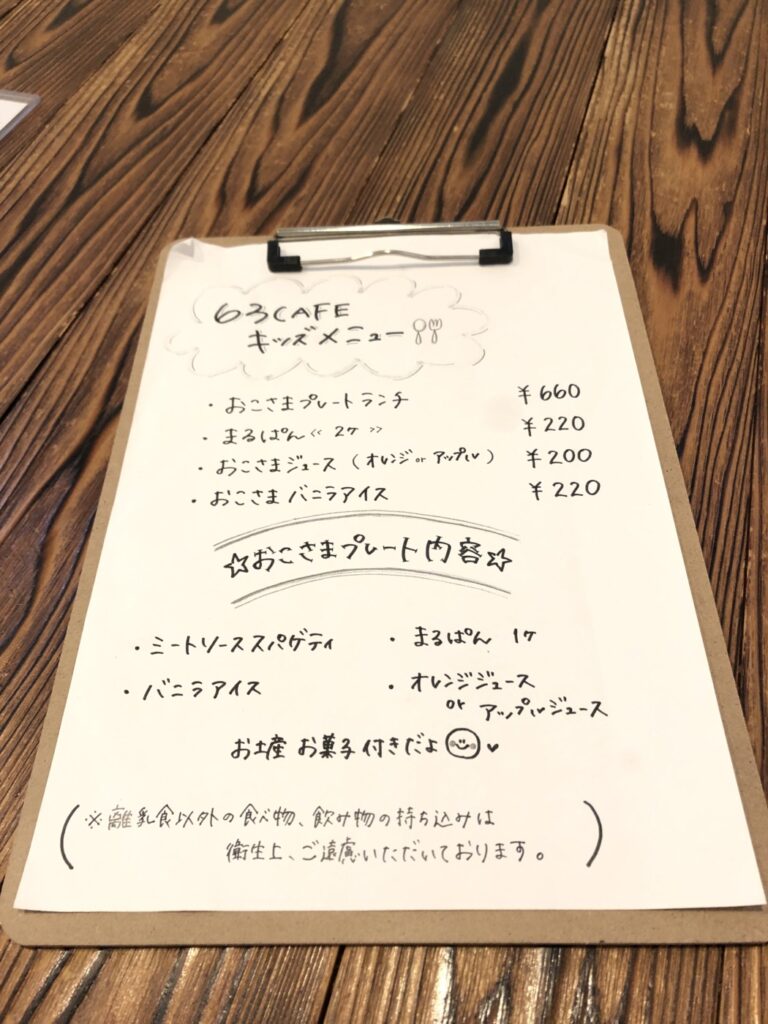 63CAFE
キッズメニュー
・おこさまプレートランチ ¥660
・まるぱん《 2ケ 》 ¥220
・おこさまジュース (オレンジ or アップル) ¥200
・おこさま バニラアイス ¥220
☆おこさまプレート内容☆
・ミートソーススパゲティ ・まるぱん 1ケ
・バニラアイス ・オレンジジュース
or アップルジュース
お土産 お菓子付きだよ
(※離乳食以外の食べ物、飲み物の持ち込みは
衛生上、ご遠慮いただいております。)